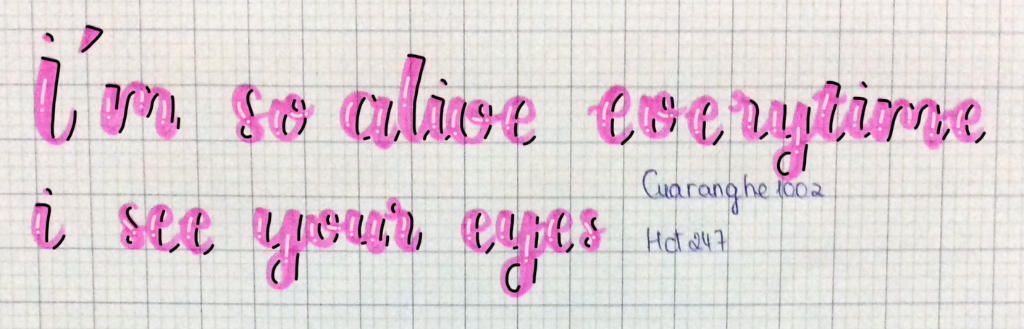 i'm so alive everytime
i see your eyes
Cuaranghe1002
Hot247